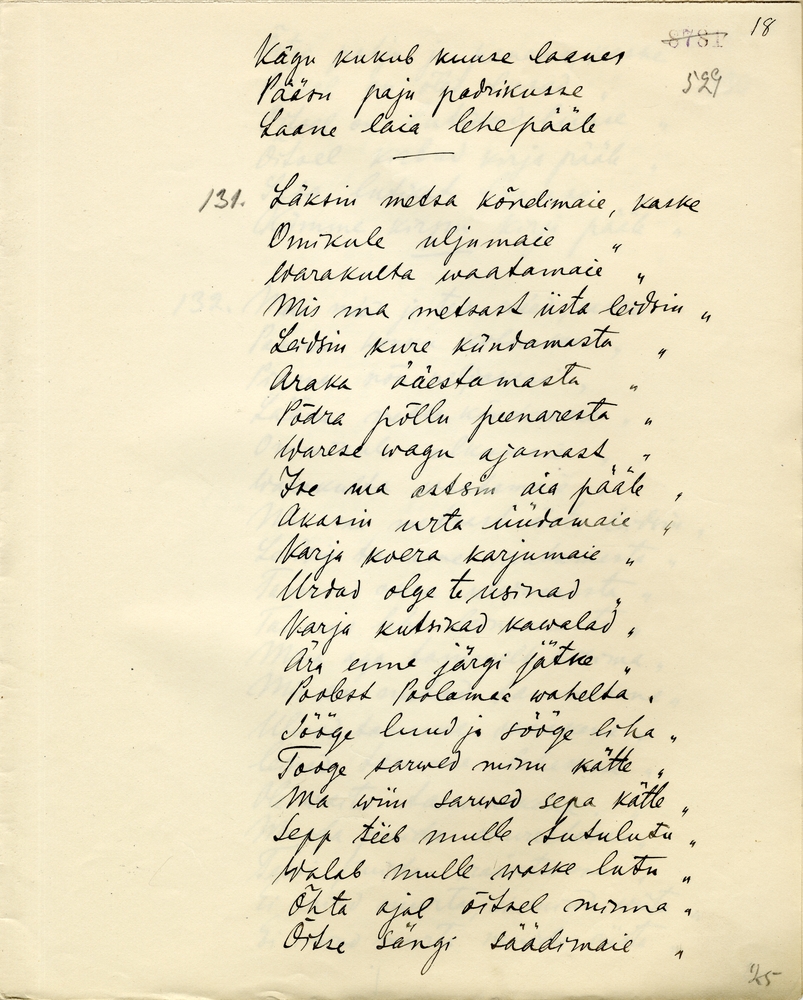 18
8781
529
Kägu kukub kuuse laanes
Pääsu paju padrikusse
Laane laia lehe pääle
131. Läksin metsa kõndimaie, kaske
Omikule uljumaie "
Warakulta waatamaie "
Mis ma metsast iista leidsin "
Leidsin kure kündamasta "
Araka ääestamasta "
Põdra põllu peenaresta "
Warese wagu ajamast "
Ise ma astsin aia pääle "
Akasin urta üüdamaie "
Karja koera karjumaie "
Urdad olge te usinad "
Karja kutsikad kawalad "
Ära enne järgi jätke "
Poolest Poolamaa wahelta "
Jööge luud ja sööge liha "
Tooge sarwed minu kätte "
Ma wiin sarwed sepa kätte "
Sepp tëeb mulle tutulutu "
Walab mulle waske lutu "
Õhta ajal õitsel minna "
Õitse sängi säädimaie "
25